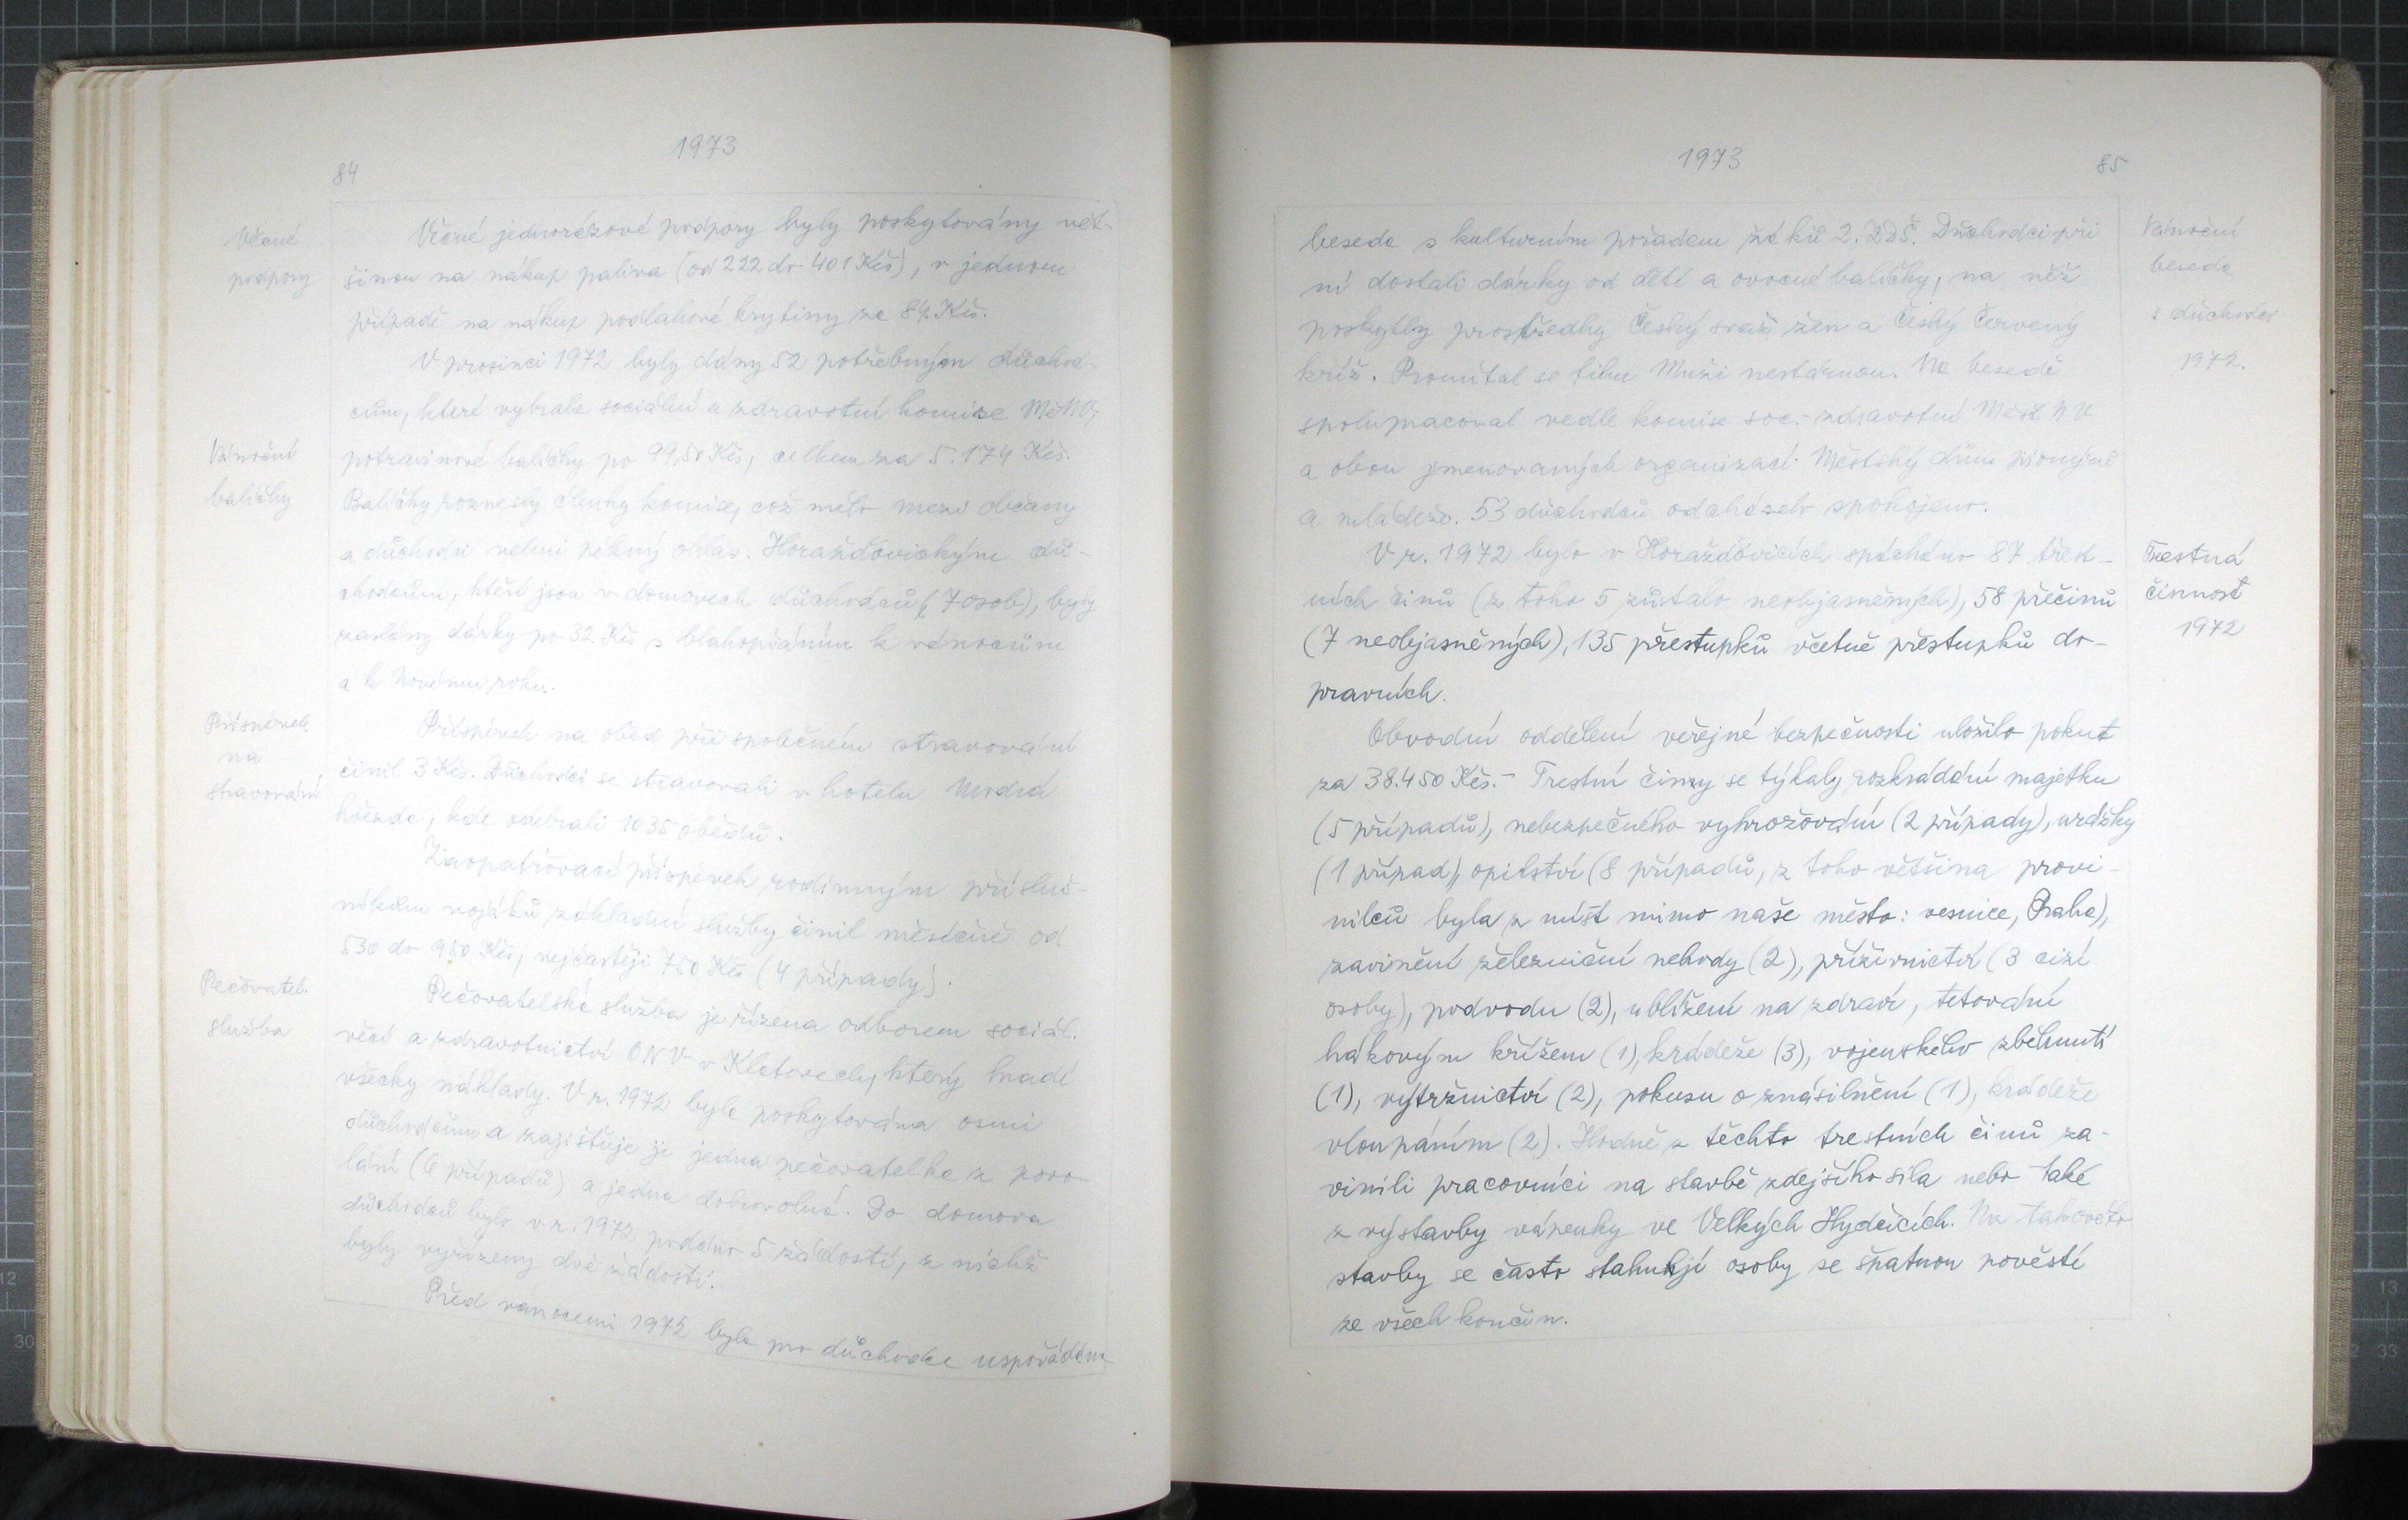 1973
84
Věcné
podpory
Věcné jednorázové podpory byly poskytovány vět-
šinou na nákup paliva (od 222 do 401 Kčs), v jednom
případě na nákup podlahové krytiny za 84 Kčs.
V prosinci 1972 byly dány 52 potřebným důchod-
cům, které vybrala sociální a zdravotní komise MěNV,
Vánoční
balíčky
potravinové balíčky po 99,50 Kčs, celkem za 5.174 Kčs.
Balíčky roznesly členky komise, což mělo mezi občany
a důchodci velmi pěkný ohlas. Horažďovickým dů-
chodcům, kteří jsou v domovech důchodců (7 osob), byly
zaslány dárky po 32 Kčs s blahopřáním k vánocům
a k Novému roku.
Příspěvek
na
stravování
Příspěvek na oběd při společném stravování
činil 3 Kčs. Důchodci se stravovali v hotelu Modrá
hvězda, kde odebrali 1035 obědů.
Zaopatřovací příspěvek rodinným přísluš-
níkům vojáků základní služby činil měsíčně od
530 do 980 Kčs, nejčastěji 750 Kčs (4 případy).
Pečovatel.
služba
Pečovatelská služba je řízena odborem sociál.
věcí a zdravotnictví ONV v Klatovech, který hradí
všecky náklady. V r. 1972 byla poskytována osmi
důchodcům a zajišťuje ji jedna pečovatelka z povo-
lání (6 případů) a jedna dobrovolná. Do domova
důchodců bylo v r. 1972 podáno 5 žádostí, z nichž
byly vyřízeny dvě žádosti.
Před vanocemi 1972 byla pro důchodce uspořádána
1973
85
Vánoční
beseda
s důchodci
1972.
beseda s kulturním pořadem žáků 2. ZDŠ. Důchodci při
ní dostali dárky od dětí a ovocné balíčky, na něž
poskytly prostředky Český svaz žen a Český červený
kříž. Promítal se film Muži nestárnou. Na besedě
spolupracoval vedle komise soc.-zdravotní MěstNV
a obou jmenovaných organizací Městský dům pionýrů
a mládeže. 53 důchodců odcházelo spokojeno.
Trestná
činnost
1972
V r. 1972 bylo v Horažďovicích spácháno 87 trest-
ních činů (z toho 5 zůstalo neobjasněných), 58 přečinů
(7 neobjasněných), 135 přestupků včetně přestupků do-
pravních.
Obvodní oddělení veřejné bezpečnosti uložilo pokut
za 38.450 Kčs.- Trestní činy se týkaly rozkrádání majetku
(5 případů), nebezpečného vyhrožování (2 případy), urážky
(1 případ), opilství (8 případů, z toho většina provi-
nilců byla z míst mimo naše město: vesnice, Praha),
zavinění železniční nehody (2), příživnictví (3 cizí
osoby), podvodu (2), ublížení na zdraví, tetování
hákovým křížem (1), krádeže (3), vojenského zběhnutí
(1), výtržnictví (2), pokusu o znásilnění (1), krádeže
vloupáním (2). Hodně z těchto trestních činů za-
vinili pracovníci na stavbě zdejšího sila nebo také
z výstavby vápenky ve Velkých Hydčicích. Na takovéto
stavby se často stahují osoby se špatnou pověstí
ze všech končin.